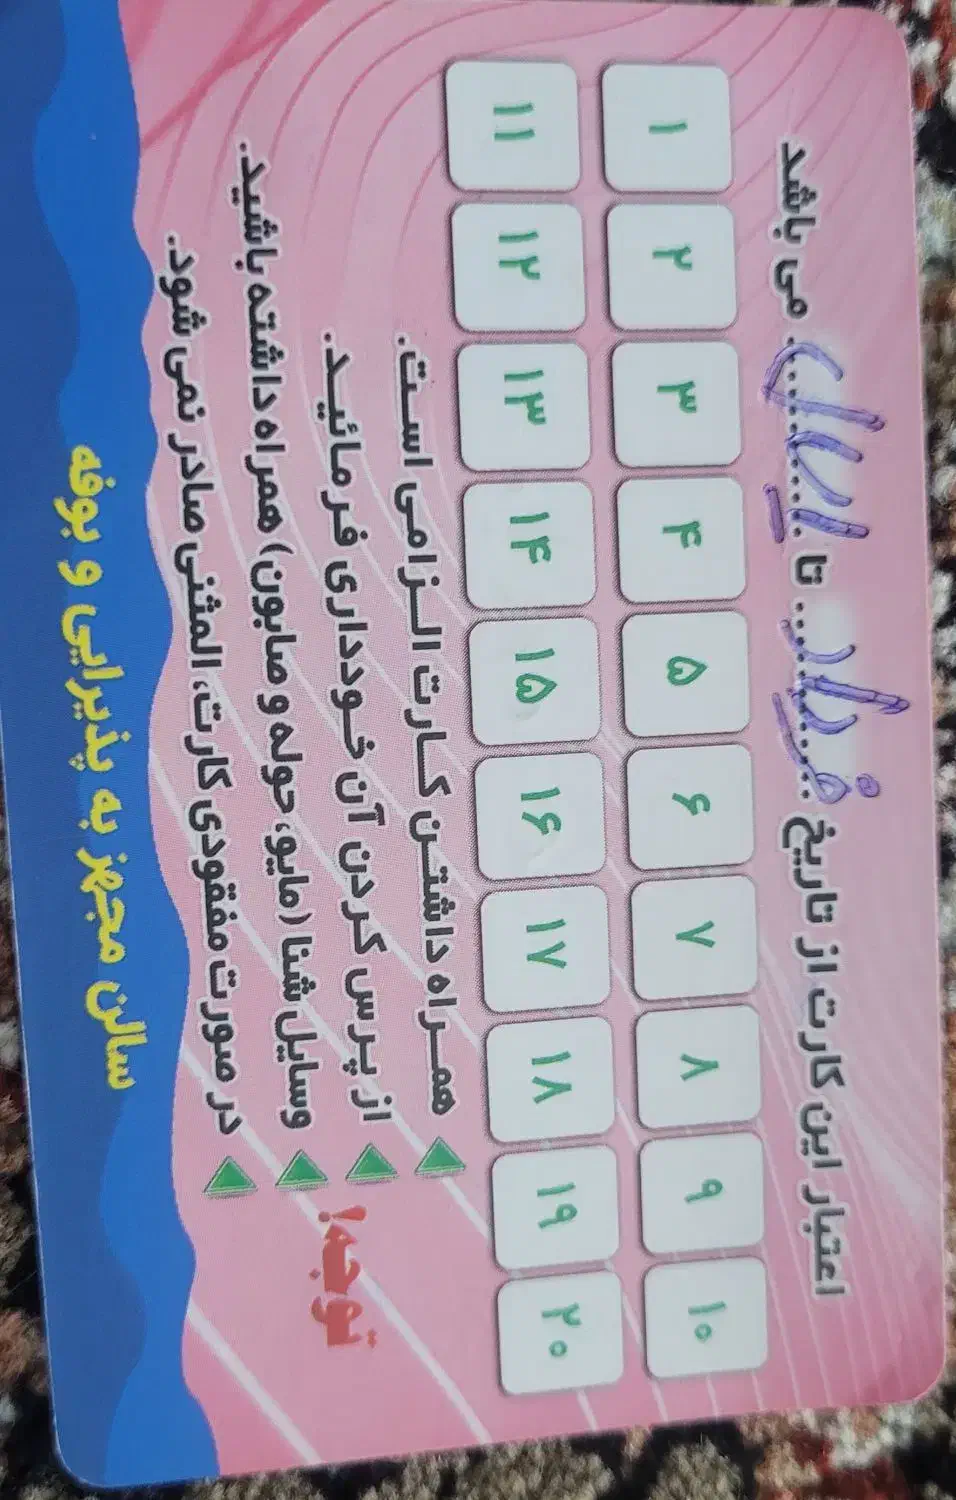 اعتبار این کارت از تاریخ ............ تا ............ می باشد
۱ ۲ ۳ ۴ ۵ ۶ ۷ ۸ ۹ ۱۰
۱۱ ۱۲ ۱۳ ۱۴ ۱۵ ۱۶ ۱۷ ۱۸ ۱۹ ۲۰
توجه!
همراه داشتن کارت الزامی است.
از پرس کردن آن خودداری فرمائید.
وسایل شنا (مایو، حوله و صابون) همراه داشته باشید.
در صورت مفقودی کارت، المثنی صادر نمی شود.
سالن مجهز به پذیرایی و بوفه